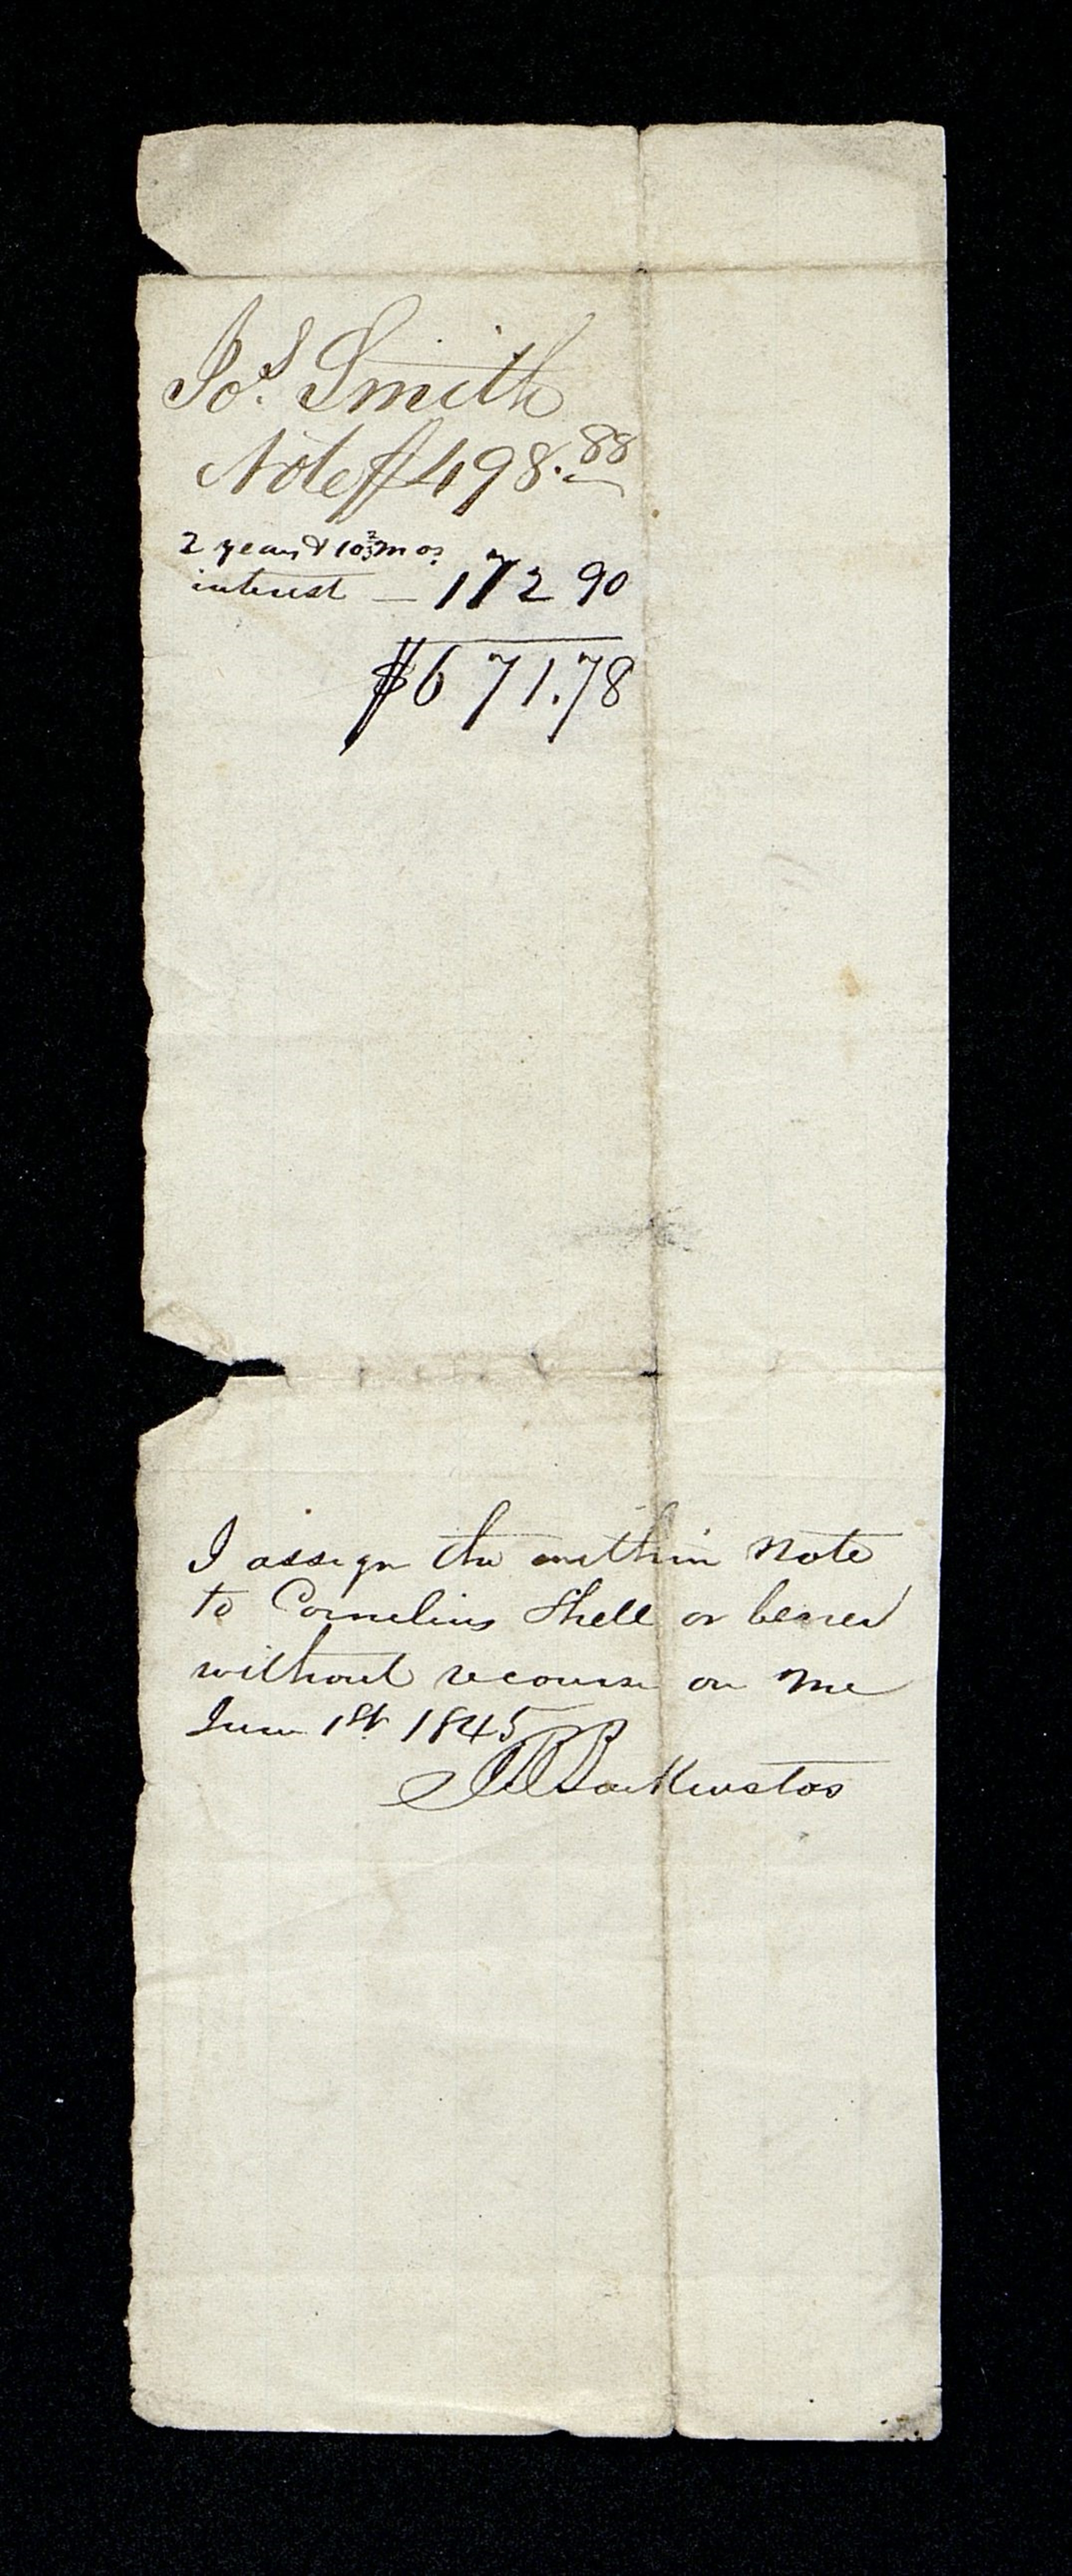 Jos. Smith
Note $498.88
2 years & 10 2/3 mos.
interest — 172 90
$671.78
I assign the within Note
to Cornelius Shell or bearer
without recourse on me
June 1st 1845
JB Backenstos